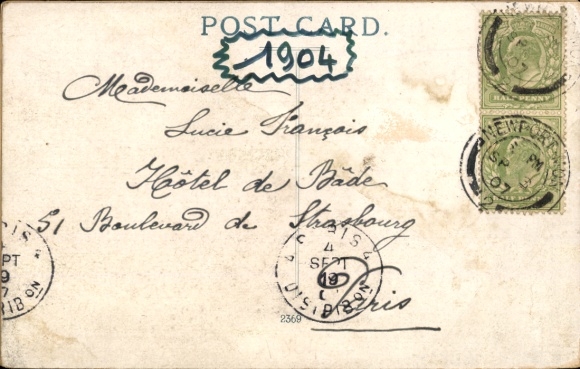 POST CARD.
1904
HALFPENNY
Mademoiselle
Lucie François
NEWPORT MON
PM
SP
07
HALFPENNY
Hôtel de Bâde
51 Boulevard de Strasbourg
PARIS
4
SEPT
19
DISTRIBON
Paris
PT
9
7
IBON
2369